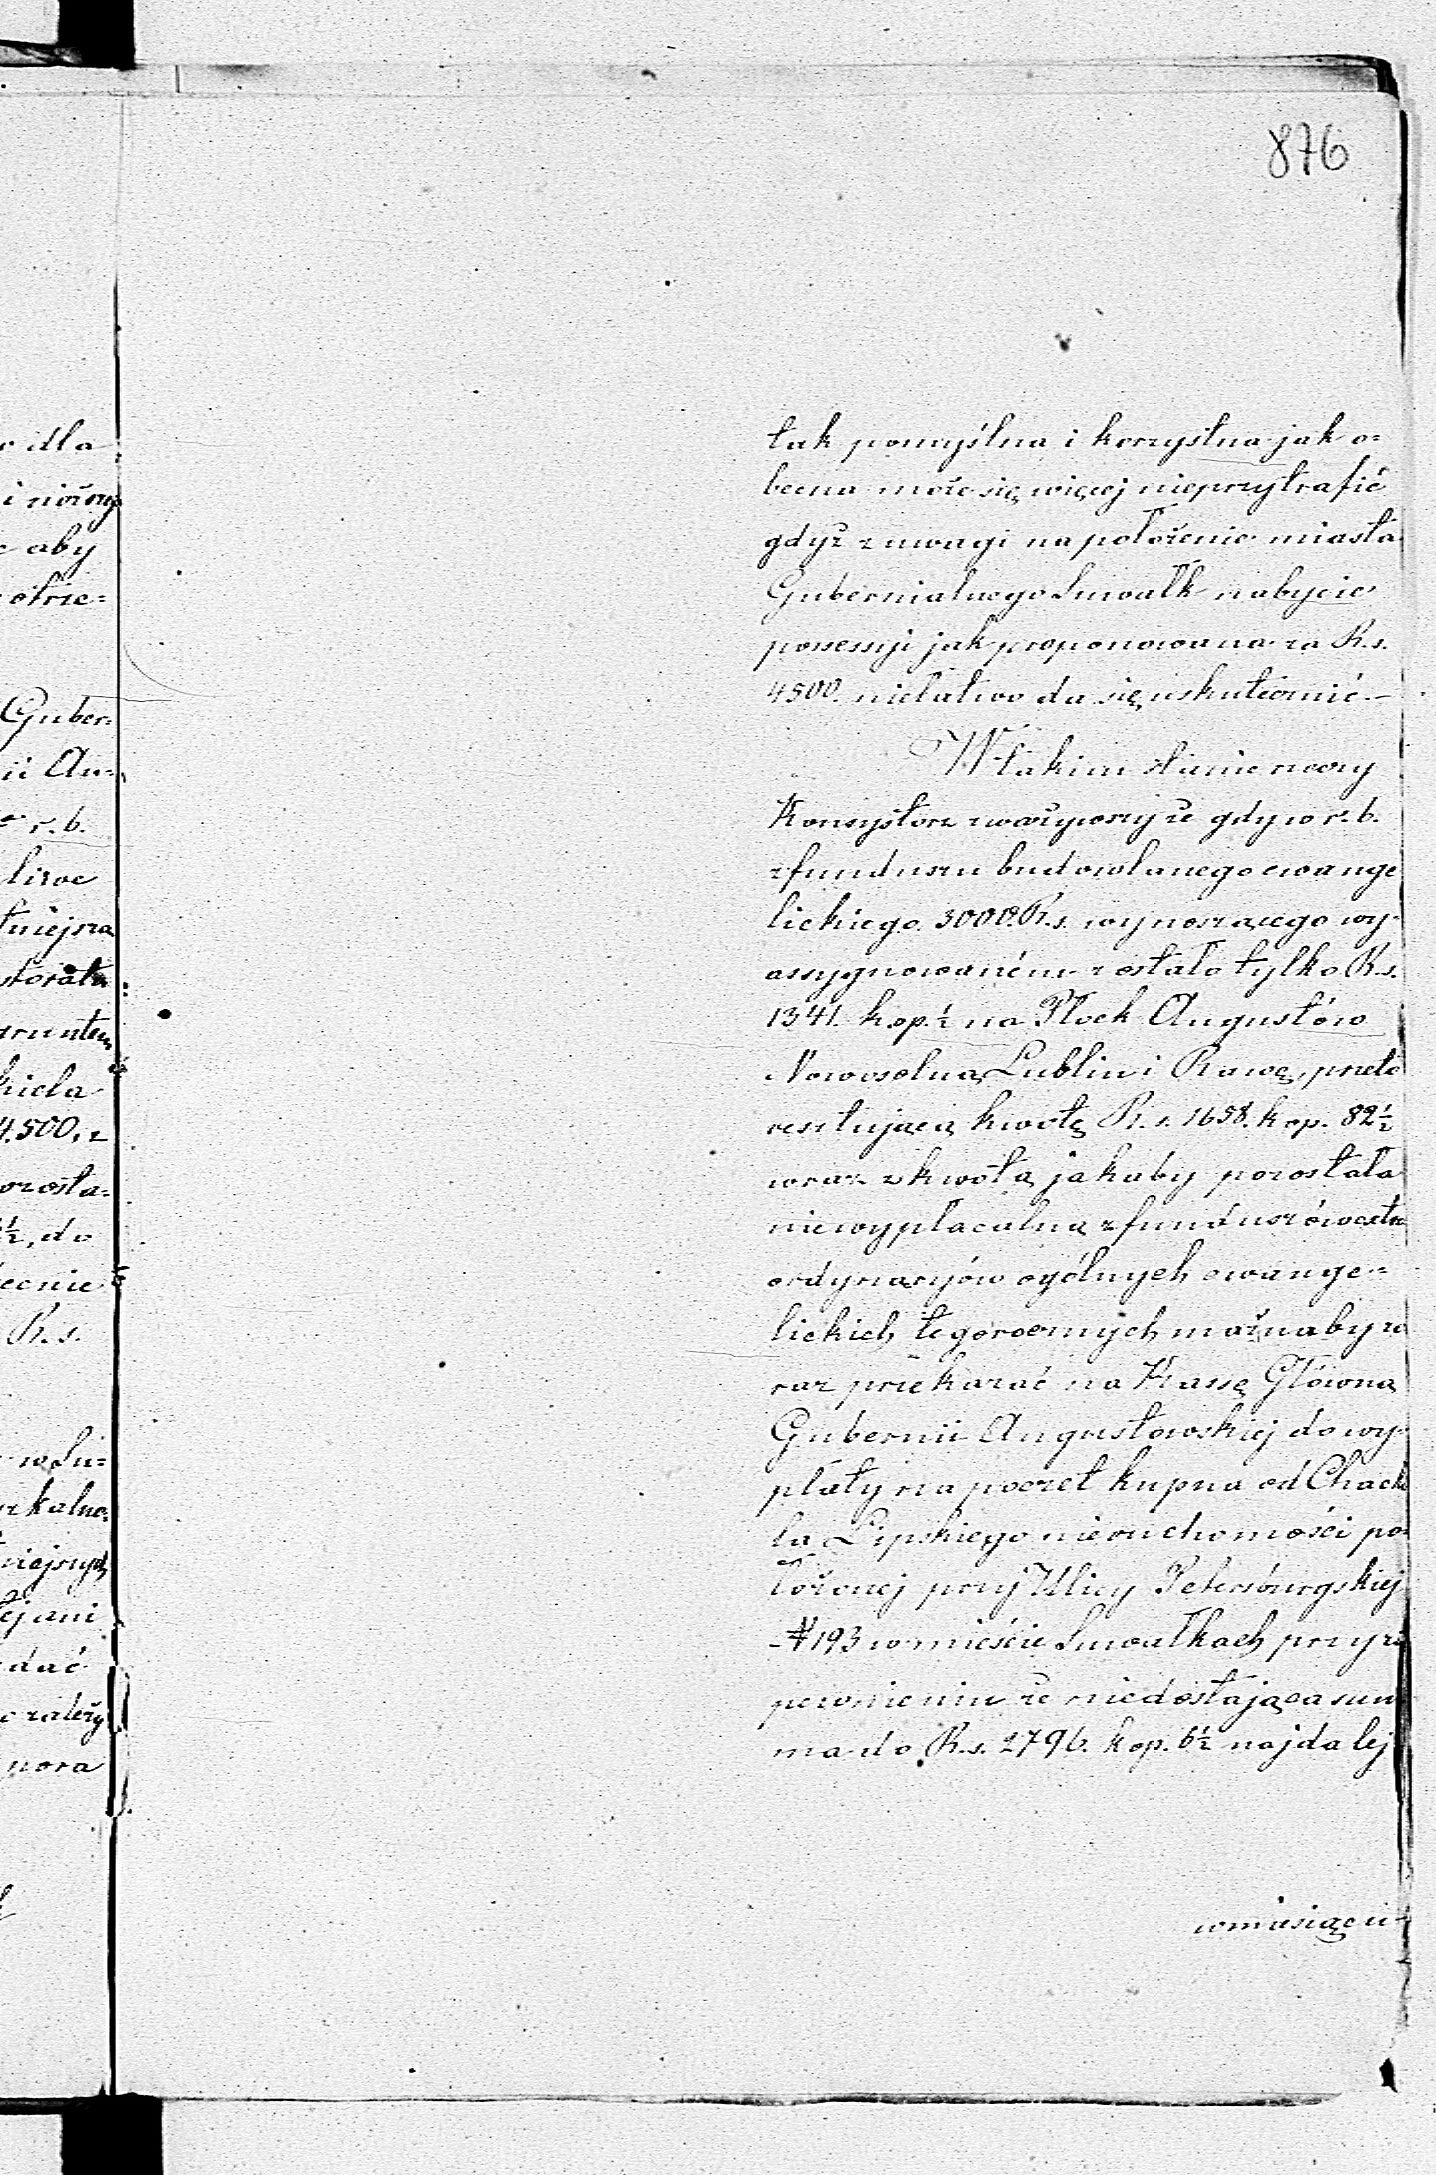 876
tak pomyślna i korzystna jak o=
becna może się więcej nieprzytrafić
gdyż z uwagi na położenie miasta
Gubernialnego Suwałk nabycie
possessyi jak proponowana za R.s.
4500. niełatwo da się uskutecznić.-
W takim stanie rzeczy
Konsystorz zważywszy że gdy w r. b.
z funduszu budowlanego ewange
lickiego 3000. R.s. wynoszącego wy-
assygnowaném zostało tylko R.s.
1341. kop. ½ na Płock Augustów
Nowosolną Lublin i Rawę, przeto
resztującą kwotę R.s. 1658. kop. 82½
wraz z kwotą jakaby pozostała
niewypłacalną z funduszów extra
ordynaryjów ogólnych ewange=
lickich tegorocznych możnaby za
raz przekazać na Kassę Główną
Gubernii Augustowskiej do wy-
płaty na poczet kupna od Chack
la Lipskiego nieruchomości po=
łożonej przy Ulicy Petersburgskiej
№ 193 w mieście Suwałkach przy za
pewnieniu że niedostająca sum
ma do R.s. 2796. kop. 6½ najdalej
w miesiącu
dla
aby
Guber=
ii Au=
r. b.
4.500. z
do
R. s.
w Su=
dać
pora